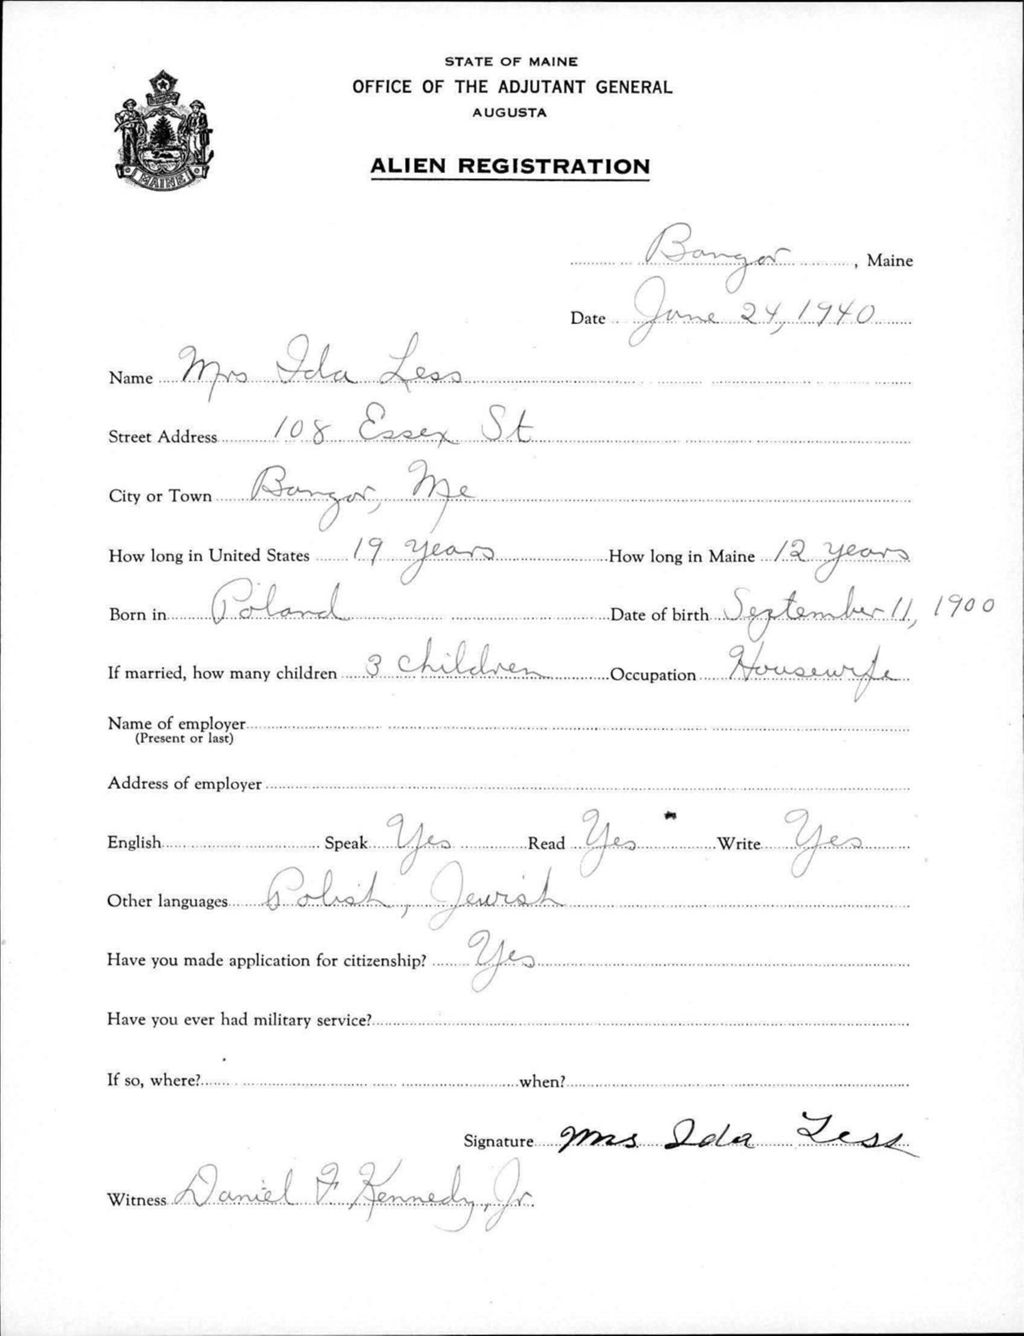 STATE OF MAINE
OFFICE OF THE ADJUTANT GENERAL
AUGUSTA
ALIEN REGISTRATION
MAINE
Bangor, Maine
Date June 24, 1940
Name Mrs Ida Less
Street Address 108 Essex St
City or Town Bangor, Me
How long in United States 19 years How long in Maine 12 years
Born in Poland Date of birth September 11, 1900
If married, how many children 3 children Occupation Housewife
Name of employer
(Present or last)
Address of employer
English Speak Yes Read Yes Write Yes
Other languages Polish, Jewish
Have you made application for citizenship? Yes
Have you ever had military service?
If so, where? when?
Signature Mrs Ida Less
Witness Daniel F. Kennedy, Jr.